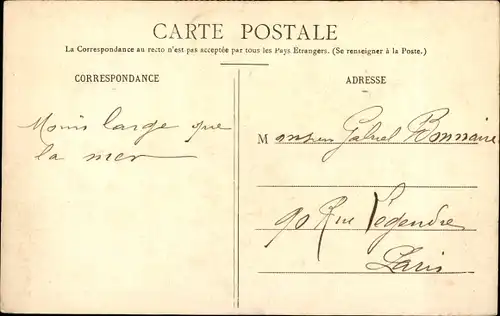 CARTE POSTALE
La Correspondance au recto n'est pas acceptée par tous les Pays Etrangers. (Se renseigner à la Poste.)
CORRESPONDANCE
Moins large que
la mer
ADRESSE
Monsieur Gabriel Bonnaire
90 Rue Légendre
Paris